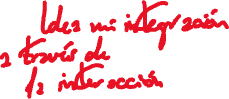 Idea mi integración
a través de
la interacción